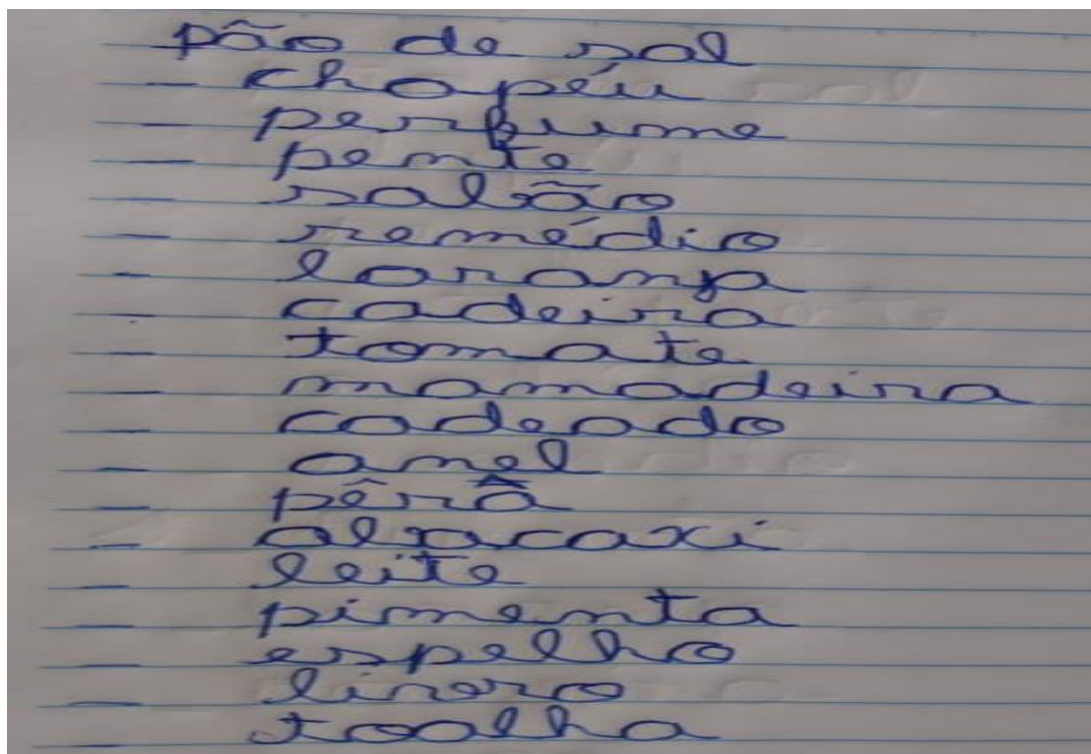 pão de sal
- chapéu
- perfume
- pente
- sabão
- remédio
- laranja
- cadeira
- tomate
- mamadeira
- cadeado
- anel
- pêra
- abacaxi
- leite
- pimenta
- espelho
- livro
- toalha